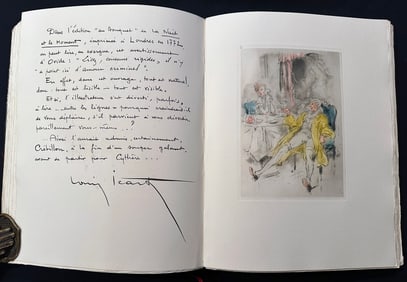 Dans l'édition "au Bouquet" de La Nuit
et le Moment, imprimée à Londres en 1772,
on peut lire, en exergue, cet avertissement
d'Ovide : "Lisez, censeurs rigides, il n'y
a point ici d'amour criminel".
En effet, dans cet ouvrage, tout est naturel,
donc tout est lisible – tout est visible.
Et si l'illustrateur s'est diverti, parfois,
à lire entre les lignes – pourquoi viendrait-il
de vous déplaire, s'il parvient à vous divertir,
pareillement vous-même... ?
Ainsi l'aurait admis, certainement,
Crébillon, à la fin d'un souper galant,
avant de partir pour Cythère...
Louis Icart